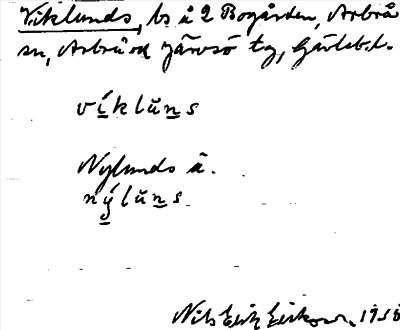 Viklunds, bs å 2 Bogården, Arbrå
sn, Arbrå od Järvsö tg, Gävleb.l.
víklŭns
Nylunds å.
nýlŭns
Nils Erik Eriksson 1958